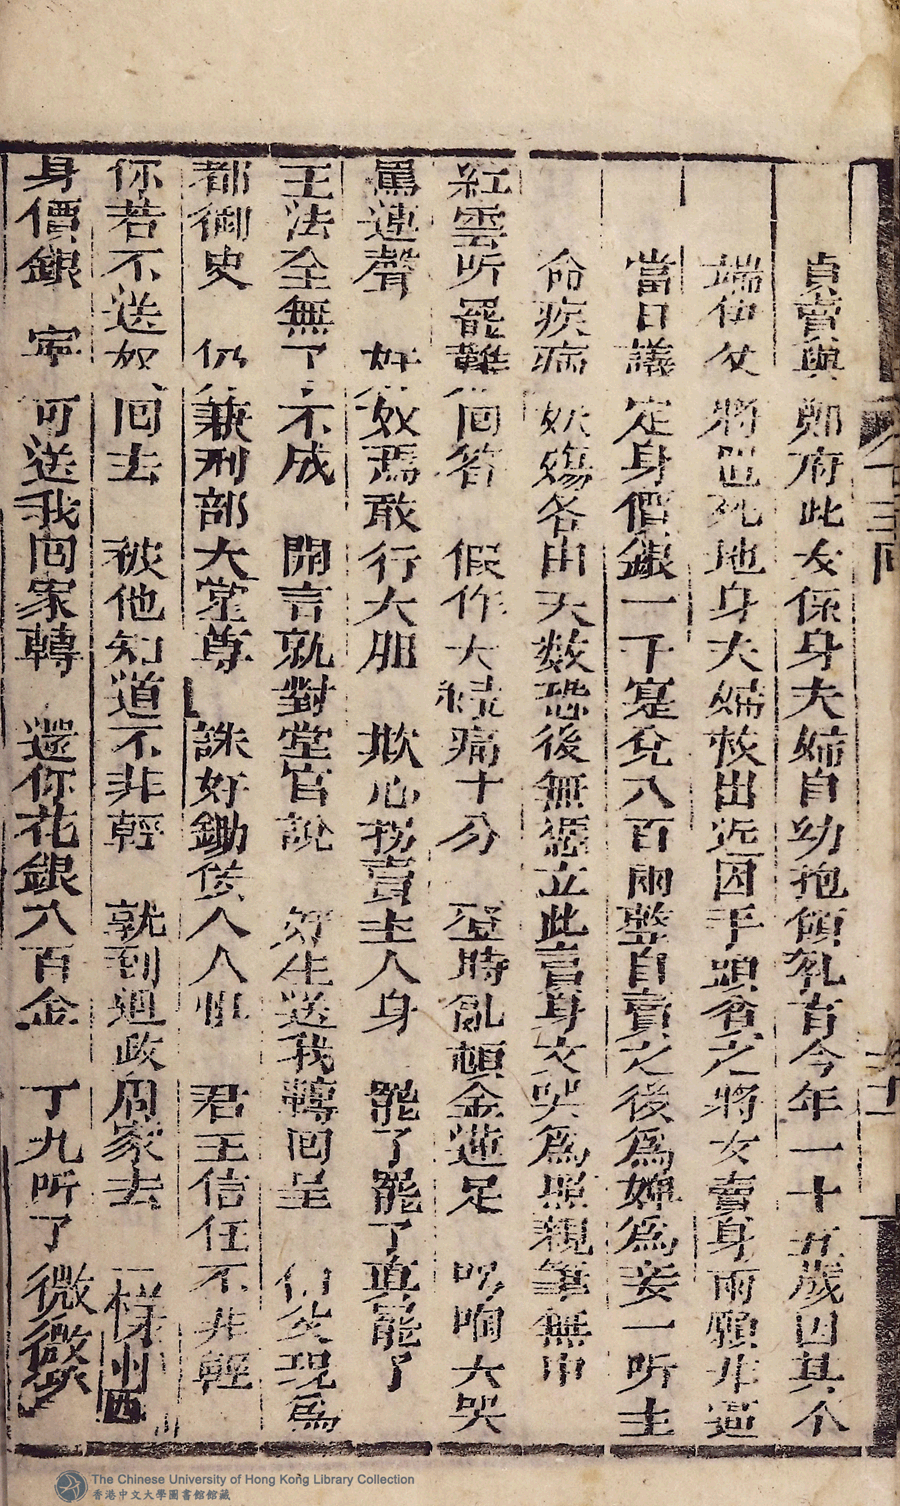 貞賣與鄭府此女係身夫婦自幼抱領乳育今年一十五歲因其不
端伊父將置死地身夫婦救出近因手頭貧乏將女賣身兩願非逼
當日議定身價銀一千寔兌八百兩整自賣之後為婢為妾一听主
命疾病妖殤各由天数恐後無憑立此賣身文契為照親筆無中
紅雲听罷難回答 假作大 痛十分 登時乱頓金蓮足 叨咱大哭
罵連聲 奸奴焉敢行大胆 欺心拐賣主人身 罷了罷了真罷了
王法全無了不成 開言就對堂官說 好生送我轉回呈 伯父現為
都御史 仍兼刑部大堂尊 誅奸鋤佞人人惧 君王信任不非輕
你若不送奴回去 被他知道不非輕 就到廵政周家去 一樣
身價銀 寧可送我回家轉 還你花銀八百金 丁九听了微微
十三回
十一
The Chinese University of Hong Kong Library Collection
香港中文大學圖書館館藏